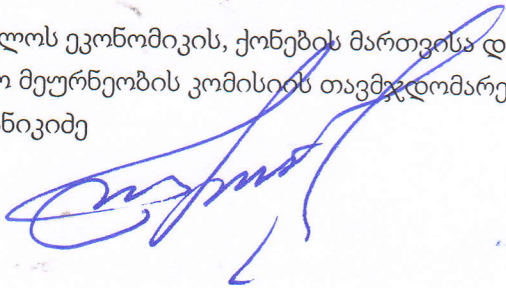 ლოს ეკონომიკის, ქონების მართვისა დ
ო მეურნეობის კომისიის თავმჯდომარე
ნიკიძე